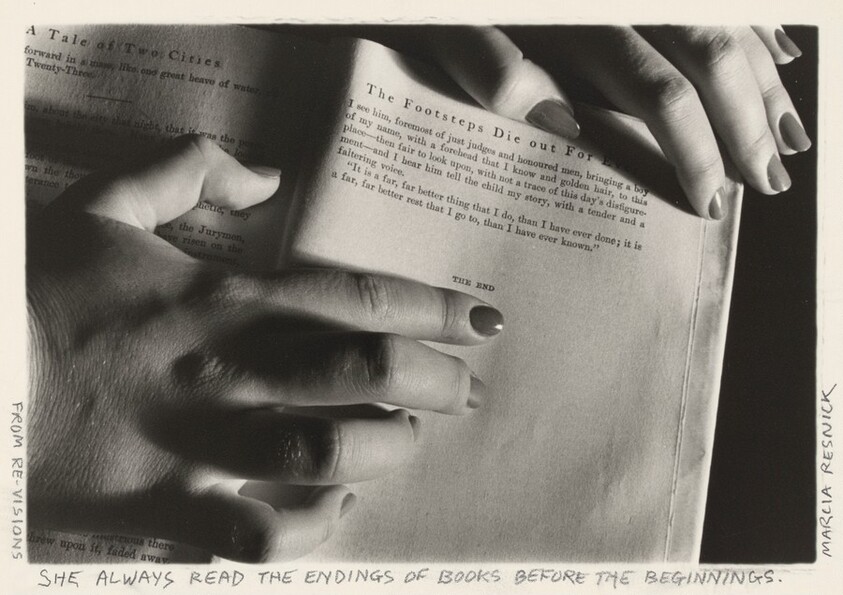 A Tale of Two Cities
forward in a mass, like one great heave of water.
Twenty-Three.
about the city that night, that it was the
they
the Jurymen,
risen on the
there
threw upon it, faded away.
The Footsteps Die out For
I see him, foremost of just judges and honoured men, bringing a boy
of my name, with a forehead that I know and golden hair, to this
place—then fair to look upon, with not a trace of this day's disfigure-
ment—and I hear him tell the child my story, with a tender and a
faltering voice.
"It is a far, far better thing that I do, than I have ever done; it is
a far, far better rest that I go to, than I have ever known."
THE END
FROM RE-VISIONS
MARCIA RESNICK
SHE ALWAYS READ THE ENDINGS OF BOOKS BEFORE THE BEGINNINGS.